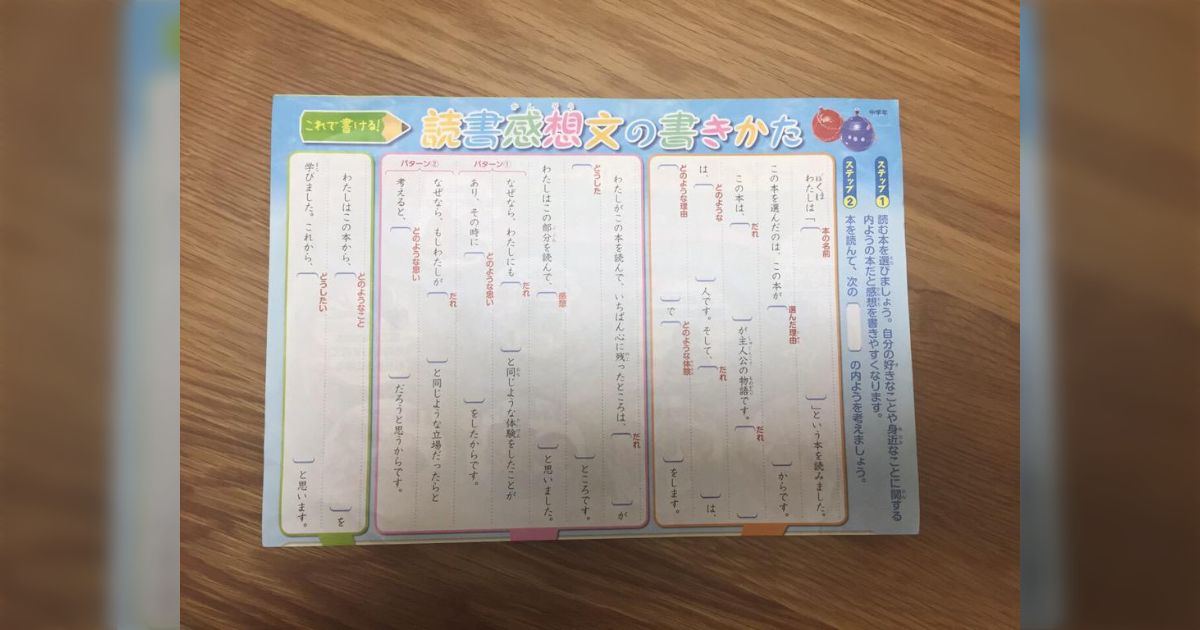 中学年
読書感想文の書きかた
かんそう
これで書ける!
ステップ1
読む本を選びましょう。自分の好きなことや身近なことに関する
内ようの本だと感想を書きやすくなります。
ステップ2
本を読んで、次の の内ようを考えましょう。
ぼくは
わたしは「 」という本を読みました。
本の名前
この本を選んだのは、この本が からです。
選んだ理由
この本は、 が主人公の物語です。
だれ
は、 人です。そして、 は、
どのような
だれ
だれ
で をします。
どのような理由
どのような体験
わたしがこの本を読んで、いちばん心に残ったところは、 が
だれ
ところです。
どうした
わたしはこの部分を読んで、 と思いました。
感想
パターン①
なぜなら、わたしにも と同じような体験をしたことが
だれ
あり、その時に をしたからです。
どのような思い
パターン②
なぜなら、もしわたしが と同じような立場だったらと
だれ
考えると、 だろうと思うからです。
どのような思い
わたしはこの本から、 を
どのようなこと
学びました。これから、 と思います。
どうしたい